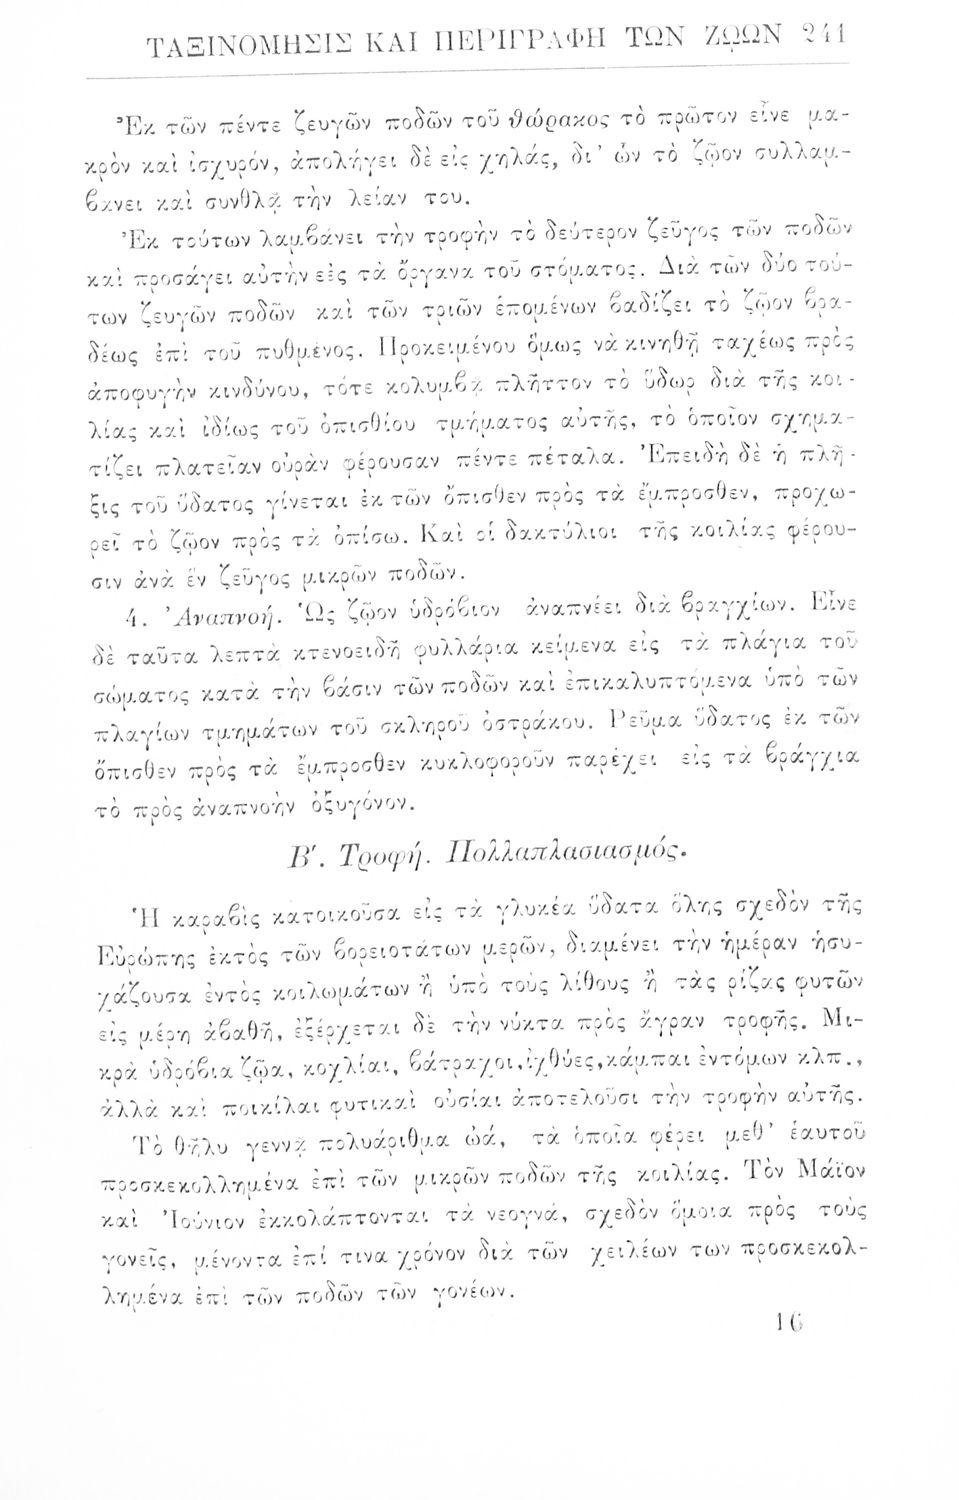 ΤΑΞΙΝΟΜΗΣΙΣ ΚΑΙ ΠΕΡΙΓΡΑΦΗ ΤΩΝ ΖΩΩΝ 241
Ἐκ τῶν πέντε ζευγῶν ποδῶν τοῦ θώρακος τὸ πρῶτον εἶνε μα-
κρὸν καὶ ἰσχυρόν, ἀπολήγει δὲ εἰς χηλάς, δι' ὧν τὸ ζῷον συλλαμ-
βάνει καὶ συνθλᾷ τὴν λείαν του.
Ἐκ τούτων λαμβάνει τὴν τροφὴν τὸ δεύτερον ζεῦγος τῶν ποδῶν
καὶ προσάγει αὐτὴν εἰς τὰ ὄργανα τοῦ στόματος. Διὰ τῶν δύο τού-
των ζευγῶν ποδῶν καὶ τῶν τριῶν ἑπομένων βαδίζει τὸ ζῷον βρα-
δέως ἐπὶ τοῦ πυθμένος. Προκειμένου ὅμως νὰ κινηθῇ ταχέως πρὸς
ἀποφυγὴν κινδύνου, τότε κολυμβᾷ πλῆττον τὸ ὕδωρ διὰ τῆς κοι-
λίας καὶ ἰδίως τοῦ ὀπισθίου τμήματος αὐτῆς, τὸ ὁποῖον σχημα-
τίζει πλατεῖαν οὐρὰν φέρουσαν πέντε πέταλα. Ἐπειδὴ δὲ ἡ πλῆ-
ξις τοῦ ὕδατος γίνεται ἐκ τῶν ὄπισθεν πρὸς τὰ ἔμπροσθεν, προχω-
ρεῖ τὸ ζῷον πρὸς τὰ ὀπίσω. Καὶ οἱ δακτύλιοι τῆς κοιλίας φέρου-
σιν ἀνὰ ἓν ζεῦγος μικρῶν ποδῶν.
4. Ἀναπνοή. Ὡς ζῷον ὑδρόβιον ἀναπνέει διὰ βραγχίων. Εἶνε
δὲ ταῦτα λεπτὰ κτενοειδῆ φυλλάρια κείμενα εἰς τὰ πλάγια τοῦ
σώματος κατὰ τὴν βάσιν τῶν ποδῶν καὶ ἐπικαλυπτόμενα ὑπὸ τῶν
πλαγίων τμημάτων τοῦ σκληροῦ ὀστράκου. Ῥεῦμα ὕδατος ἐκ τῶν
ὄπισθεν πρὸς τὰ ἔμπροσθεν κυκλοφοροῦν παρέχει εἰς τὰ βράγχια
τὸ πρὸς ἀναπνοὴν ὀξυγόνον.
Β'. Τροφή. Πολλαπλασιασμός.
Ἡ καραβὶς κατοικοῦσα εἰς τὰ γλυκέα ὕδατα ὅλης σχεδὸν τῆς
Εὐρώπης ἐκτὸς τῶν βορειοτάτων μερῶν, διαμένει τὴν ἡμέραν ἡσυ-
χάζουσα ἐντὸς κοιλωμάτων ἢ ὑπὸ τοὺς λίθους ἢ τὰς ρίζας φυτῶν
εἰς μέρη ἀβαθῆ, ἐξέρχεται δὲ τὴν νύκτα πρὸς ἄγραν τροφῆς. Μι-
κρὰ ὑδρόβια ζῷα, κοχλίαι, βάτραχοι, ἰχθύες, κάμπαι ἐντόμων κλπ.,
ἀλλὰ καὶ ποικίλαι φυτικαὶ οὐσίαι ἀποτελοῦσι τὴν τροφὴν αὐτῆς.
Τὸ θῆλυ γεννᾷ πολυάριθμα ᾠά, τὰ ὁποῖα φέρει μεθ' ἑαυτοῦ
προσκεκολλημένα ἐπὶ τῶν μικρῶν ποδῶν τῆς κοιλίας. Τὸν Μάϊον
καὶ Ἰούνιον ἐκκολάπτονται τὰ νεογνά, σχεδὸν ὅμοια πρὸς τοὺς
γονεῖς, μένοντα ἐπί τινα χρόνον διὰ τῶν χειλέων των προσκεκολ-
λημένα ἐπὶ τῶν ποδῶν τῶν γονέων.
16